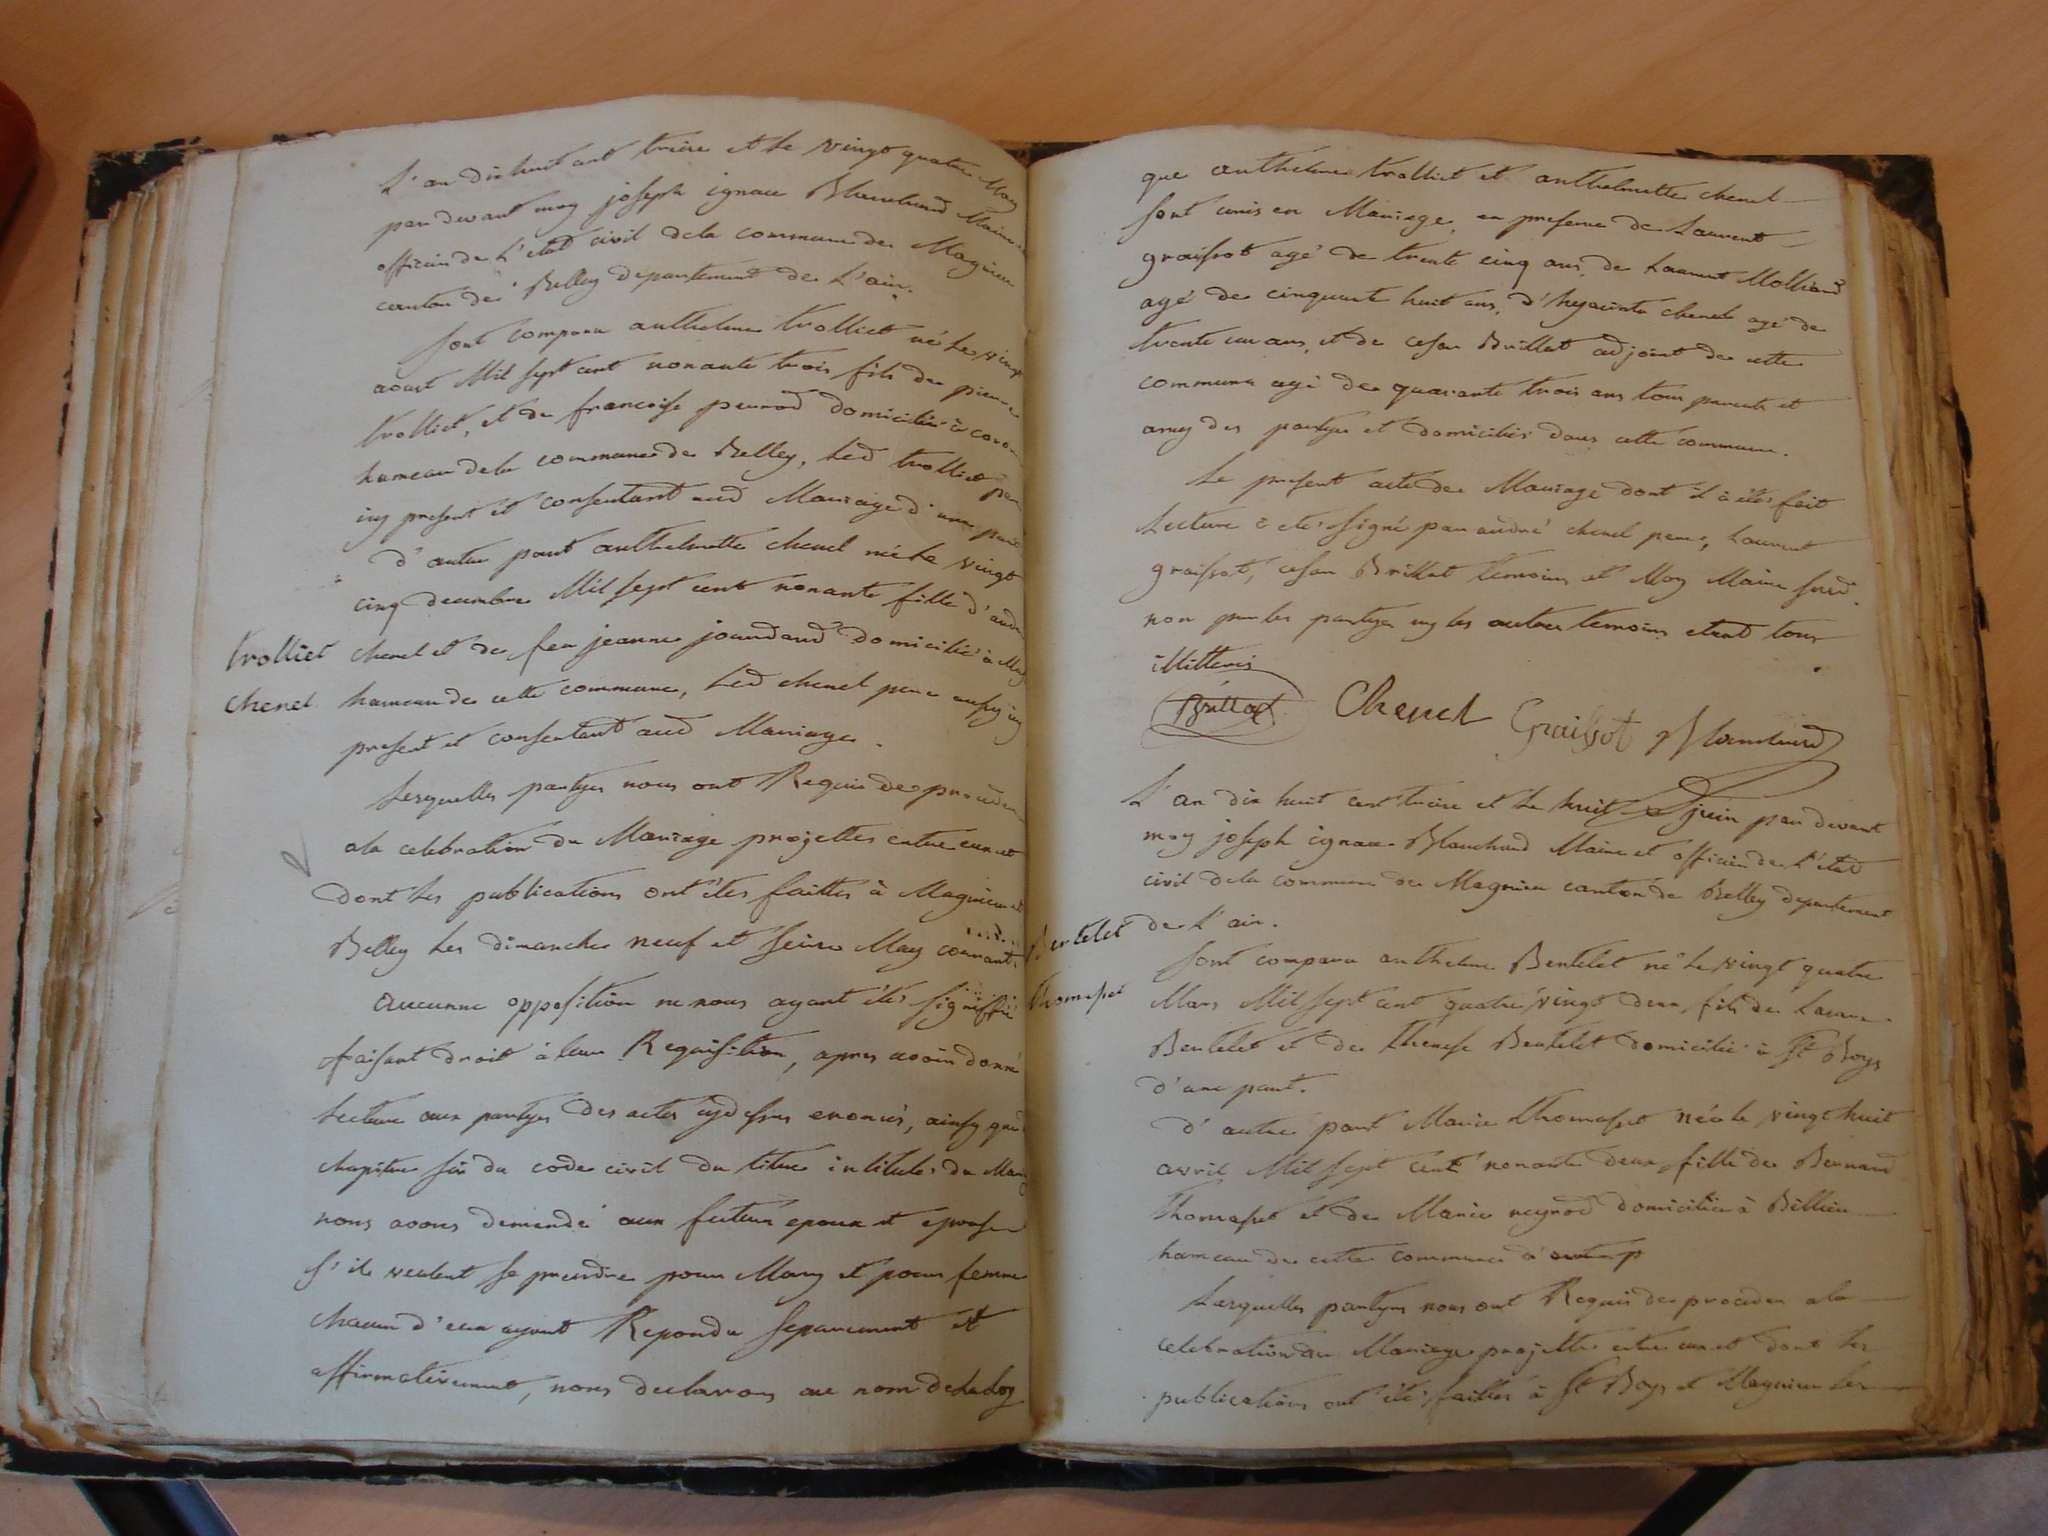 L'an dix huit cent treize et le vingt quatre May
par devant moy joseph ignace Blanchard Maire et
officier de L'etat civil dela commune de Magnieu
canton de Belley departement de L'ain.
sont comparu anthelme trolliet né le vingt
aoust Mil sept cent nonante trois fils de pierre
trolliet, et de francoise perrod domicilié à
hameau dela commune de Belley, Led trolliet pere
icy present et consentant aud Mariage d'une part
d'autre part anthelmette chenel née le vingt
cinq decembre Mil sept cent nonante fille d'andré
trolliet
chenel
chenel et de feu jeanne jourdand domicilié à
hameau de cette commune, Led chenel pere aussy icy
present et consentant aud Mariage.
Lesquelles partyes nous ont Requis de proceder
ala celebration du Mariage projettes entre eux et
dont les publications ont étés faittes à Magnieu et
Belley les dimanches neuf et seize May courant.
aucunne opposition ne nous ayant étés signiffié
faisant droit à leur Requisition, apres avoir donné
Lecture aux partyes des actes cydessus enoncés, ainsy que
chapitre six du code civil du titre intitulés du Mariage
nous avons demandé aux futurs epoux et epouse
s'ils veulent se prendre pour Mary et pour femme
chacun d'eux ayant Repondu separement et
affirmativement, nous declarons au nom dela loy
que anthelme trolliet et anthelmette chenel
sont unis en Mariage, en presence de Laurent
graissot agé de trente cinq ans, de Laurent Molliand
agé de cinquante huit ans, d'hyacinte chenel agé de
trente un ans, et de cesar Brillat adjoint de cette
commune agé de quarante trois ans tous parents et
amy des partyes et domiciliés dans cette commune.
Le present acte de Mariage dont il à étés fait
Lecture à etés signé par andré chenel pere, Laurent
graissot, cesar Brillat temoins et Moy Maire susd.
non par les partyes ny les autres temoins etant tous
illitteris
Brillat Chenel Graissot Blanchard
L'an dix huit cent treize et le huit juin par devant
moy joseph ignace Blanchard Maire et officier de L'etat
civil dela commune de Magnieu canton de Belley departement
Bertelet
thomasset
de L'ain.
sont comparu anthelme Bertelet né le vingt quatre
Mars Mil sept cent quatre vingt deux, fils de Laurent
Bertelet et de therese Bertelet domicilié à St Boys
d'une part.
d'autre part Marie thomasset née le vingt huit
avril Mil sept cent nonante deux fille de Bernard
thomasset et de Marie reynod domiciliée à Billieu
hameau de cette commune
Lesquelles partyes nous ont Requis de proceder ala
celebration du Mariage projetté entre eux et dont les
publications ont étés faittes à St Boys et Magnieu les